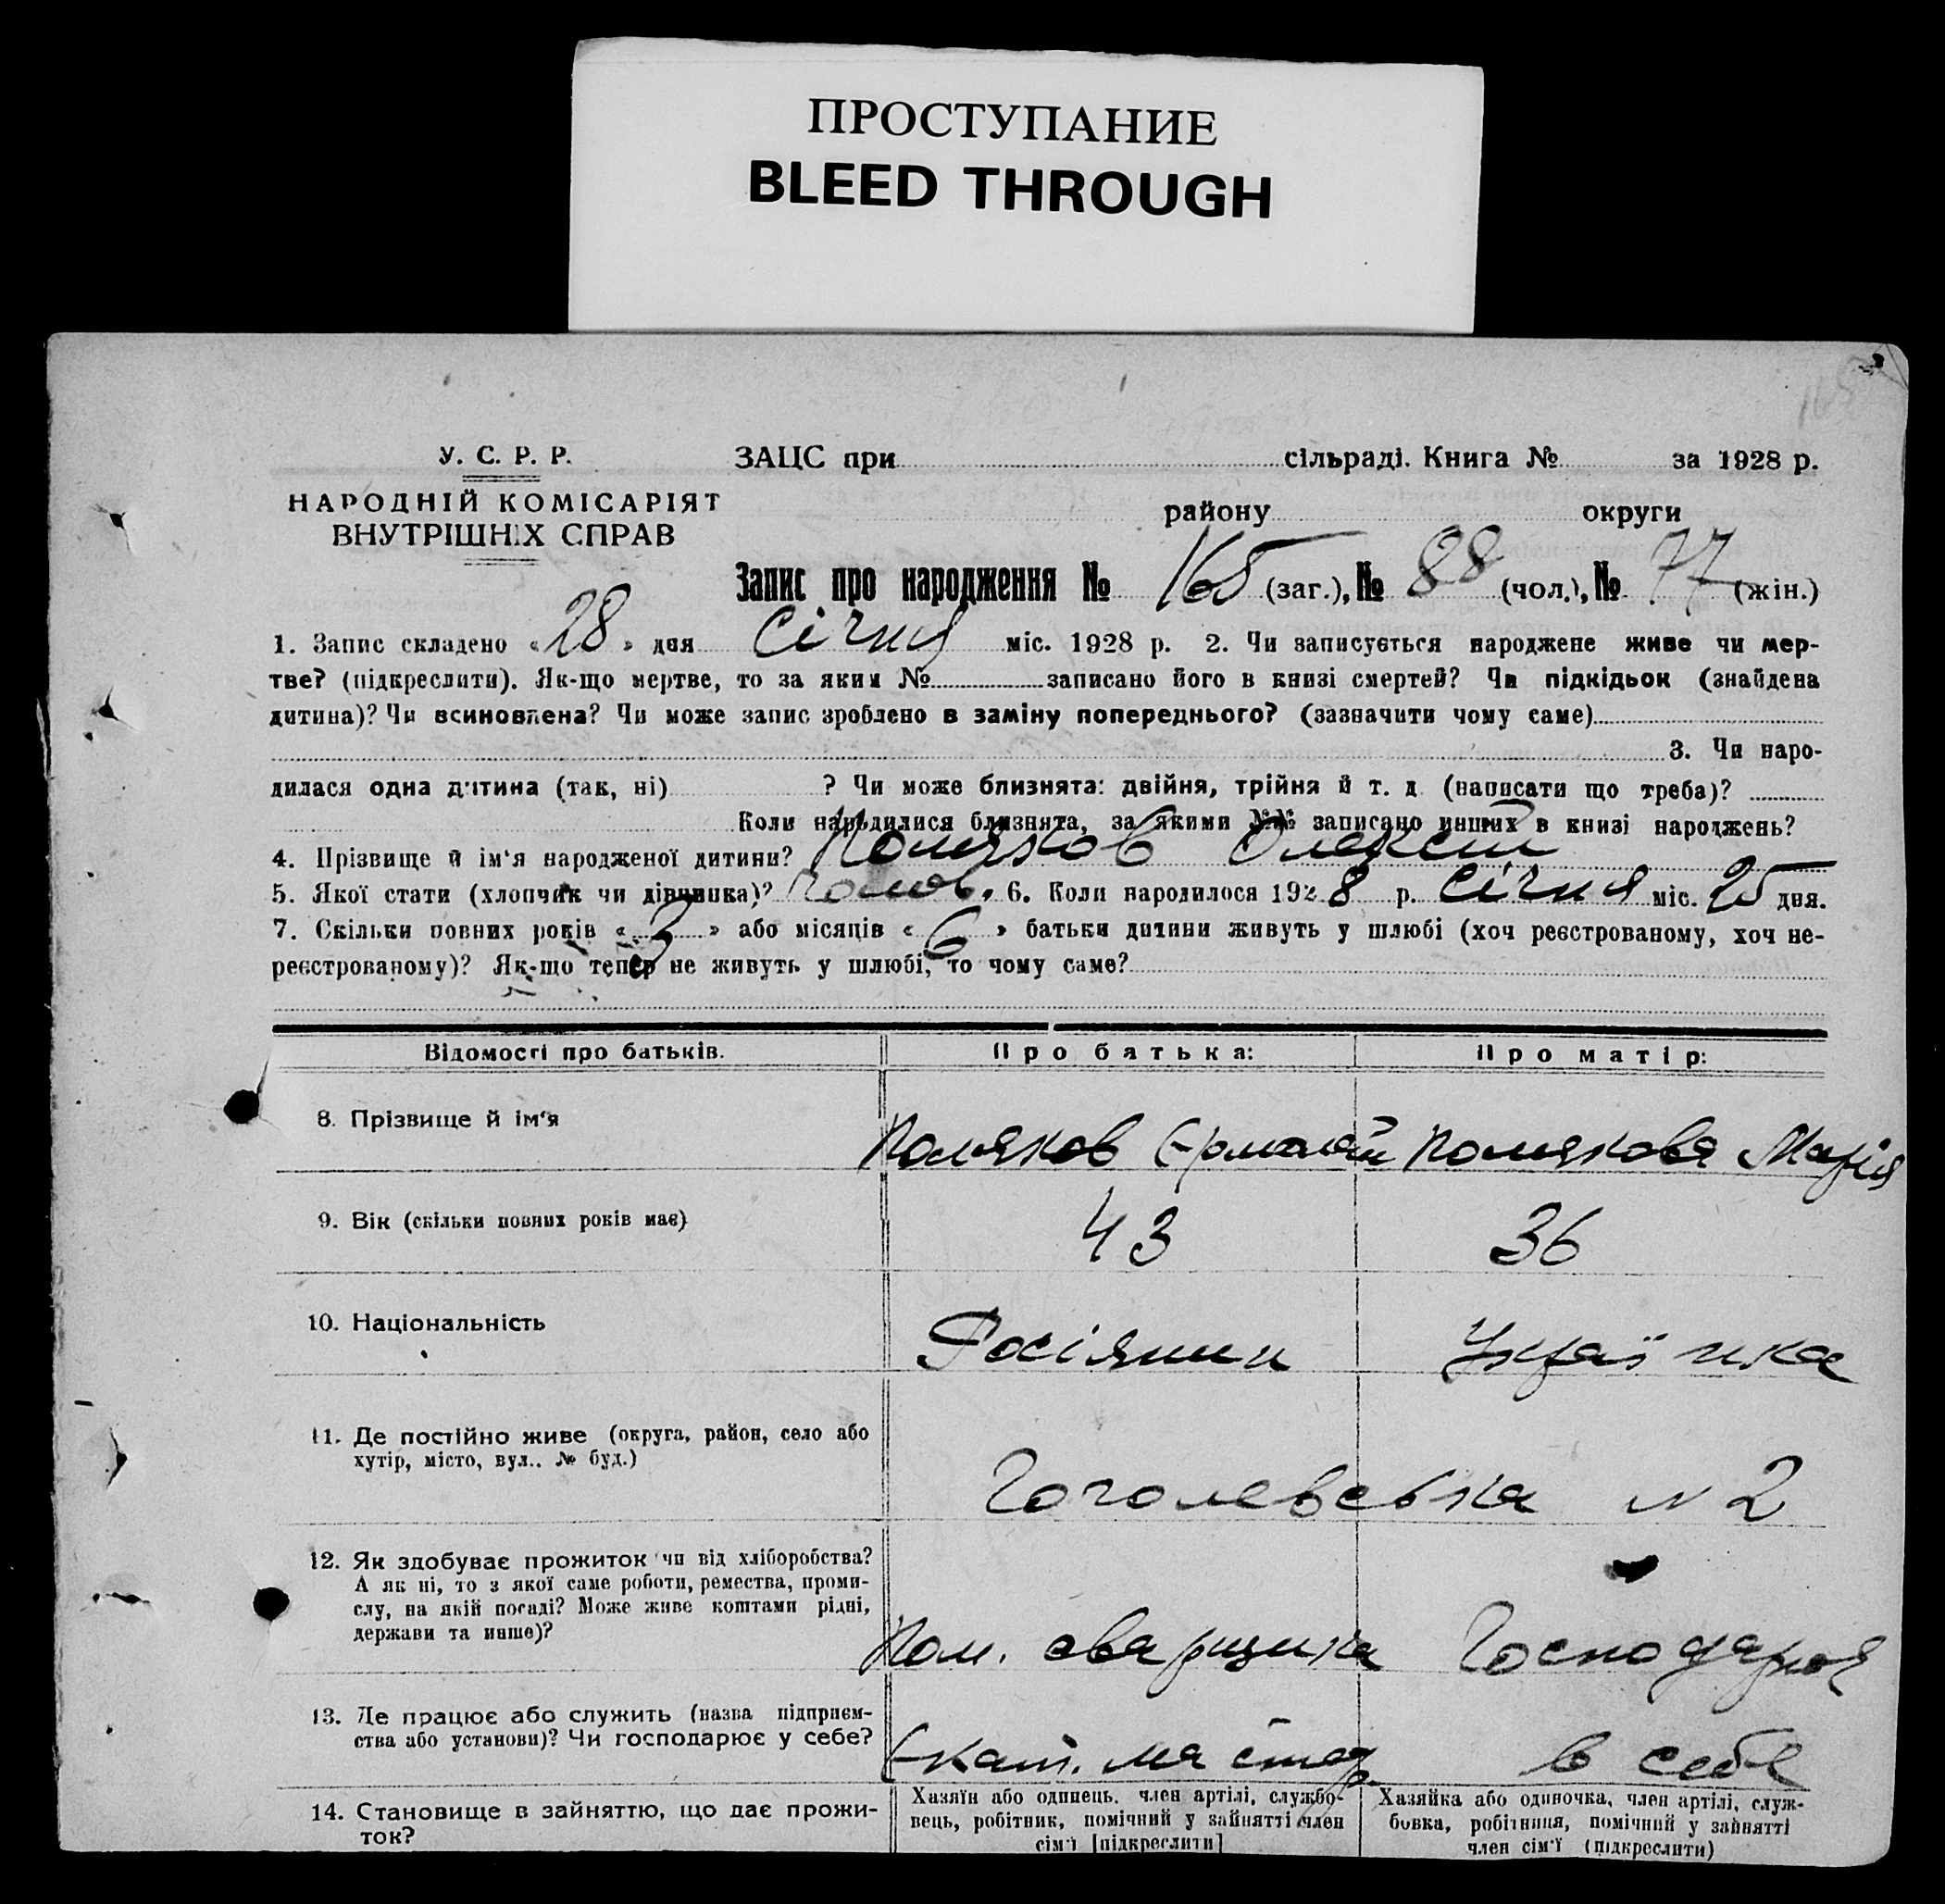 ПРОСТУПАНИЕ
BLEED THROUGH
У. С. Р. Р.
НАРОДНІЙ КОМІСАРІЯТ
ВНУТРІШНІХ СПРАВ
ЗАЦС при сільраді. Книга № за 1928 р.
району округи
Запис про народження № 165 (заг.), № 88 (чол.), № 77 (жін.)
1. Запис складено «28» дня Січня міс. 1928 р. 2. Чи записується народжене живе чи мер-
тве? (підкреслити). Як-що мертве, то за яким № записано його в книзі смертей? Чи підкідьок (знайдена
дитина)? Чи всиновлена? Чи може запис зроблено в заміну попереднього? (зазначити чому саме)
3. Чи наро-
дилася одна дитина (так, ні) ? Чи може близнята: двійня, трійня й т. д (написати що треба)?
Коли народилися близнята, за якими №№ записано инших в книзі народжень?
4. Прізвище й ім'я народженої дитини? Поляков Олексій
5. Якої стати (хлопчик чи дівчинка)? чолов. 6. Коли народилося 1928 р. Січня міс. 25 дня.
7. Скільки повних років «3» або місяців «6» батьки дитини живуть у шлюбі (хоч реєстрованому, хоч не-
реєстрованому)? Як-що тепер не живуть у шлюбі, то чому саме?
Відомості про батьків. Про батька: Про матір:
8. Прізвище й ім'я Поляков Ермолай Полякова Марія
9. Вік (скільки повних років має) 43 36
10. Національність Росіянин Українка
11. Де постійно живе (округа, район, село або
хутір, місто, вул.. № буд.)
Гоголевська № 2
12. Як здобуває прожиток чи від хліборобства?
А як ні, то з якої саме роботи, ремества, проми-
слу, на якій посаді? Може живе коштами рідні,
держави та инше)?
Пом. сварщика Господарює
13. Де працює або служить (назва підприєм-
ства або установи)? Чи господарює у себе?
Екат. майстер. в себе
14. Становище в зайняттю, що дає прожи-
ток?
Хазяїн або одинець, член артілі, службо-
вець, робітник, помічний у зайнятті член
сім'ї [підкреслити]
Хазяйка або одиночка, член артілі, служ-
бовка, робітниця, помічний у зайнятті
член сім'ї (підкреслити)